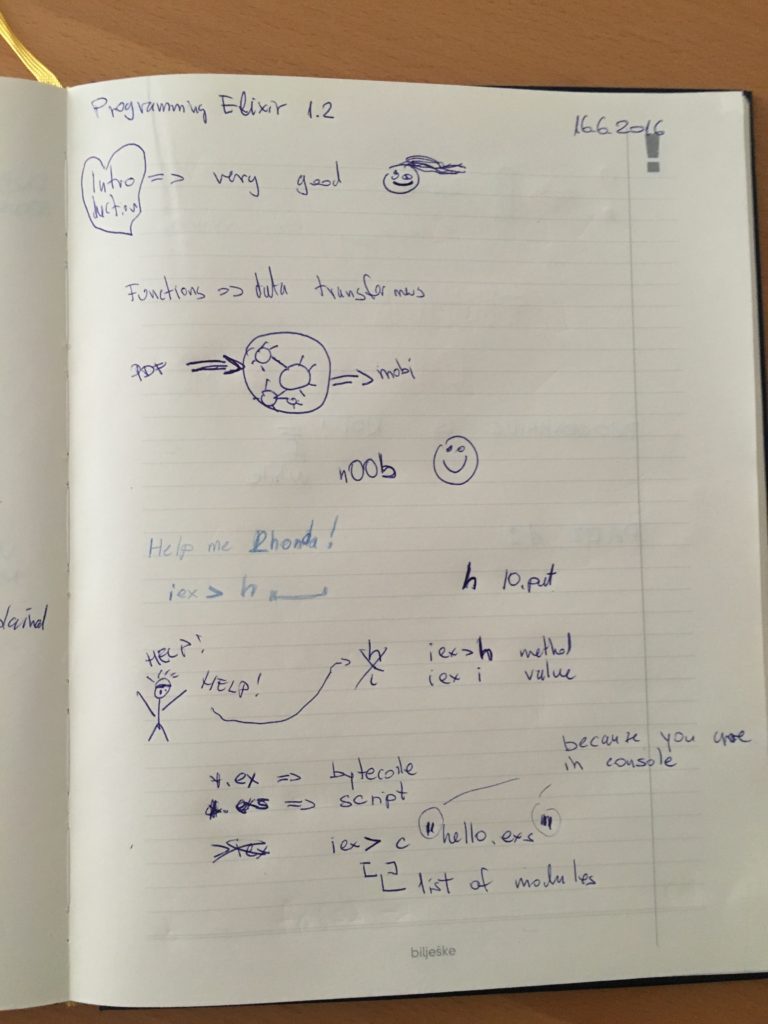 Programming Elixir 1.2
16.6.2016
!
Introduction => very good
Functions => data transformers
PDF => => mobi
n00b
Help me Rhonda!
iex > h
h IO.put
HELP!
HELP!
h
i
iex>h method
iex i value
because you are
in console
*.ex => bytecode
*.exs => script
iex
iex> c "hello.exs"
[ ]
list of modules
bilješke